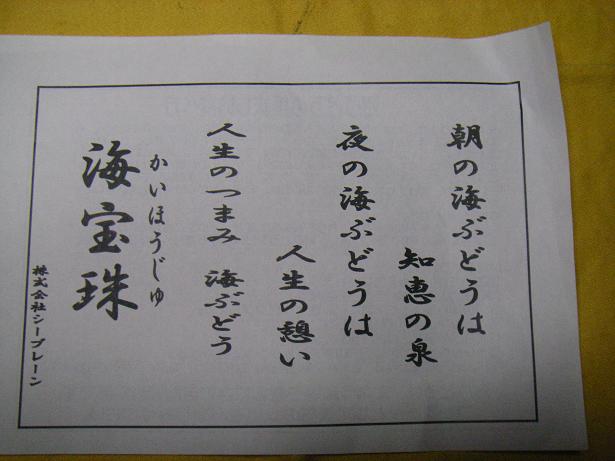 朝の海ぶどうは
知恵の泉
夜の海ぶどうは
人生の憩い
人生のつまみ　海ぶどう
かいほうじゅ
海宝珠
株式会社シープレーン